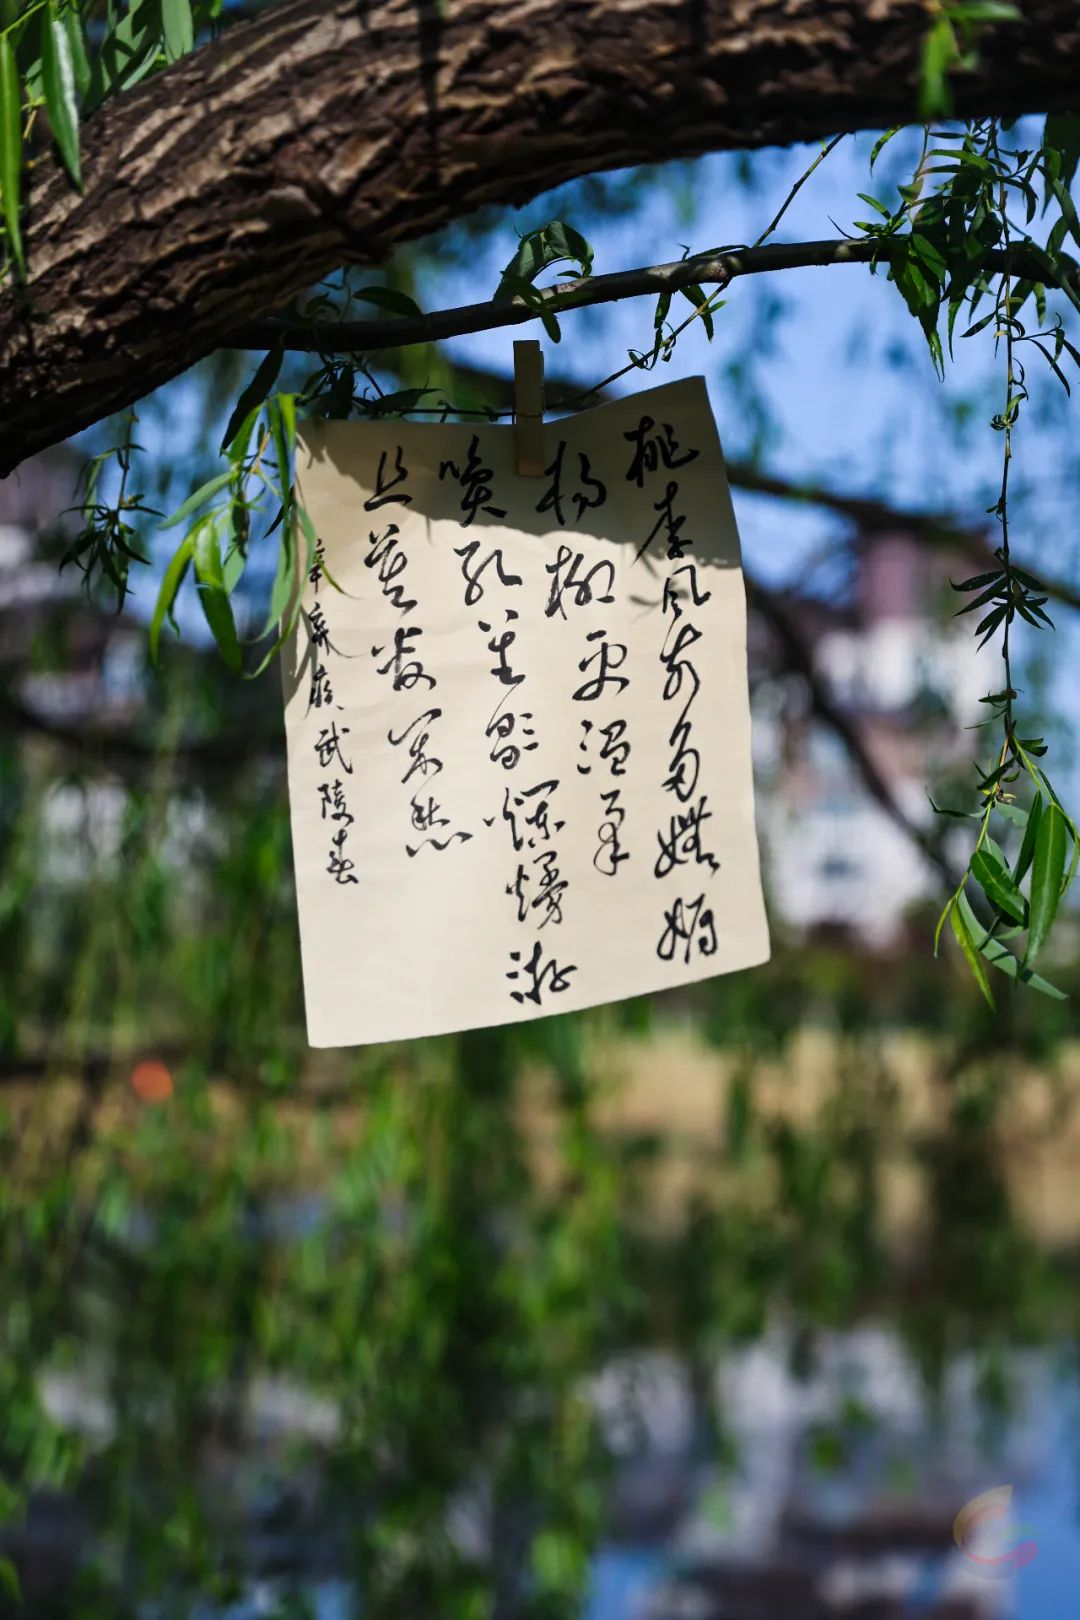 桃李风前多嫵媚
杨柳更温柔
唤取笙歌爛熳游
且莫管闲愁
辛棄疾武陵春